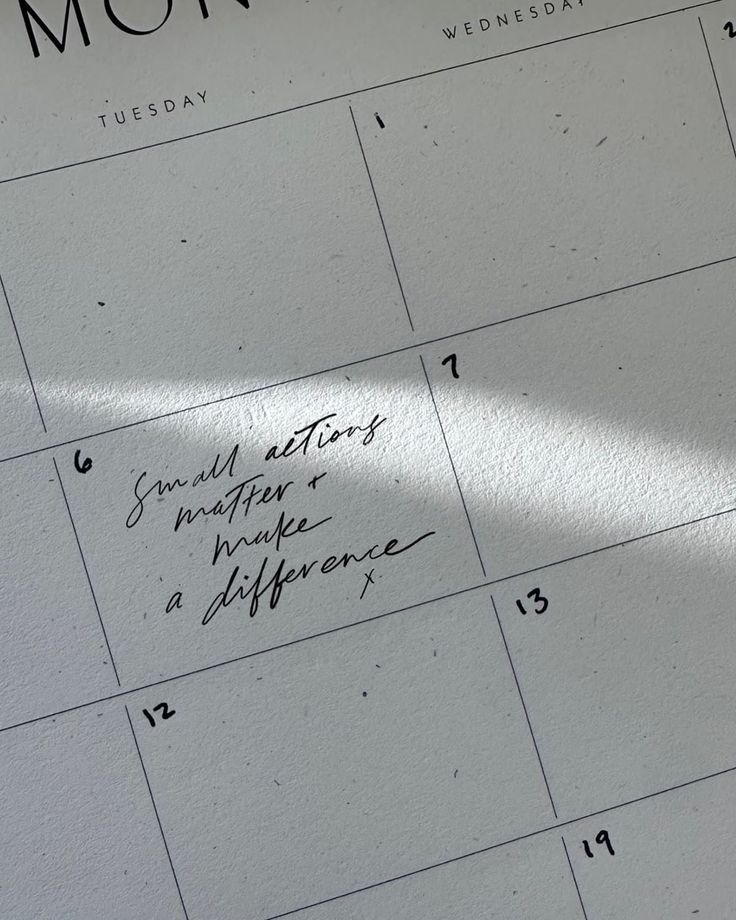 MON
TUESDAY
WEDNESDAY
1
2
6
7
small actions
matter +
make
a difference
x
12
13
19